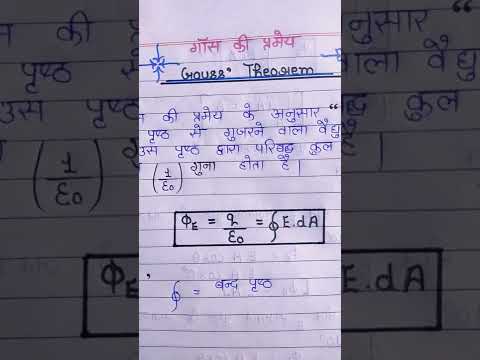 गॉस की प्रमेय
Gauss' Theorem
की प्रमेय के अनुसार “
पृष्ठ से गुजरने वाला वैद्यु
उस पृष्ठ द्वारा परिबद्ध कुल
(1/ε₀) गुना होता है।
Φ_E = q/ε₀ = ∮E.dA
∮ = बन्द पृष्ठ